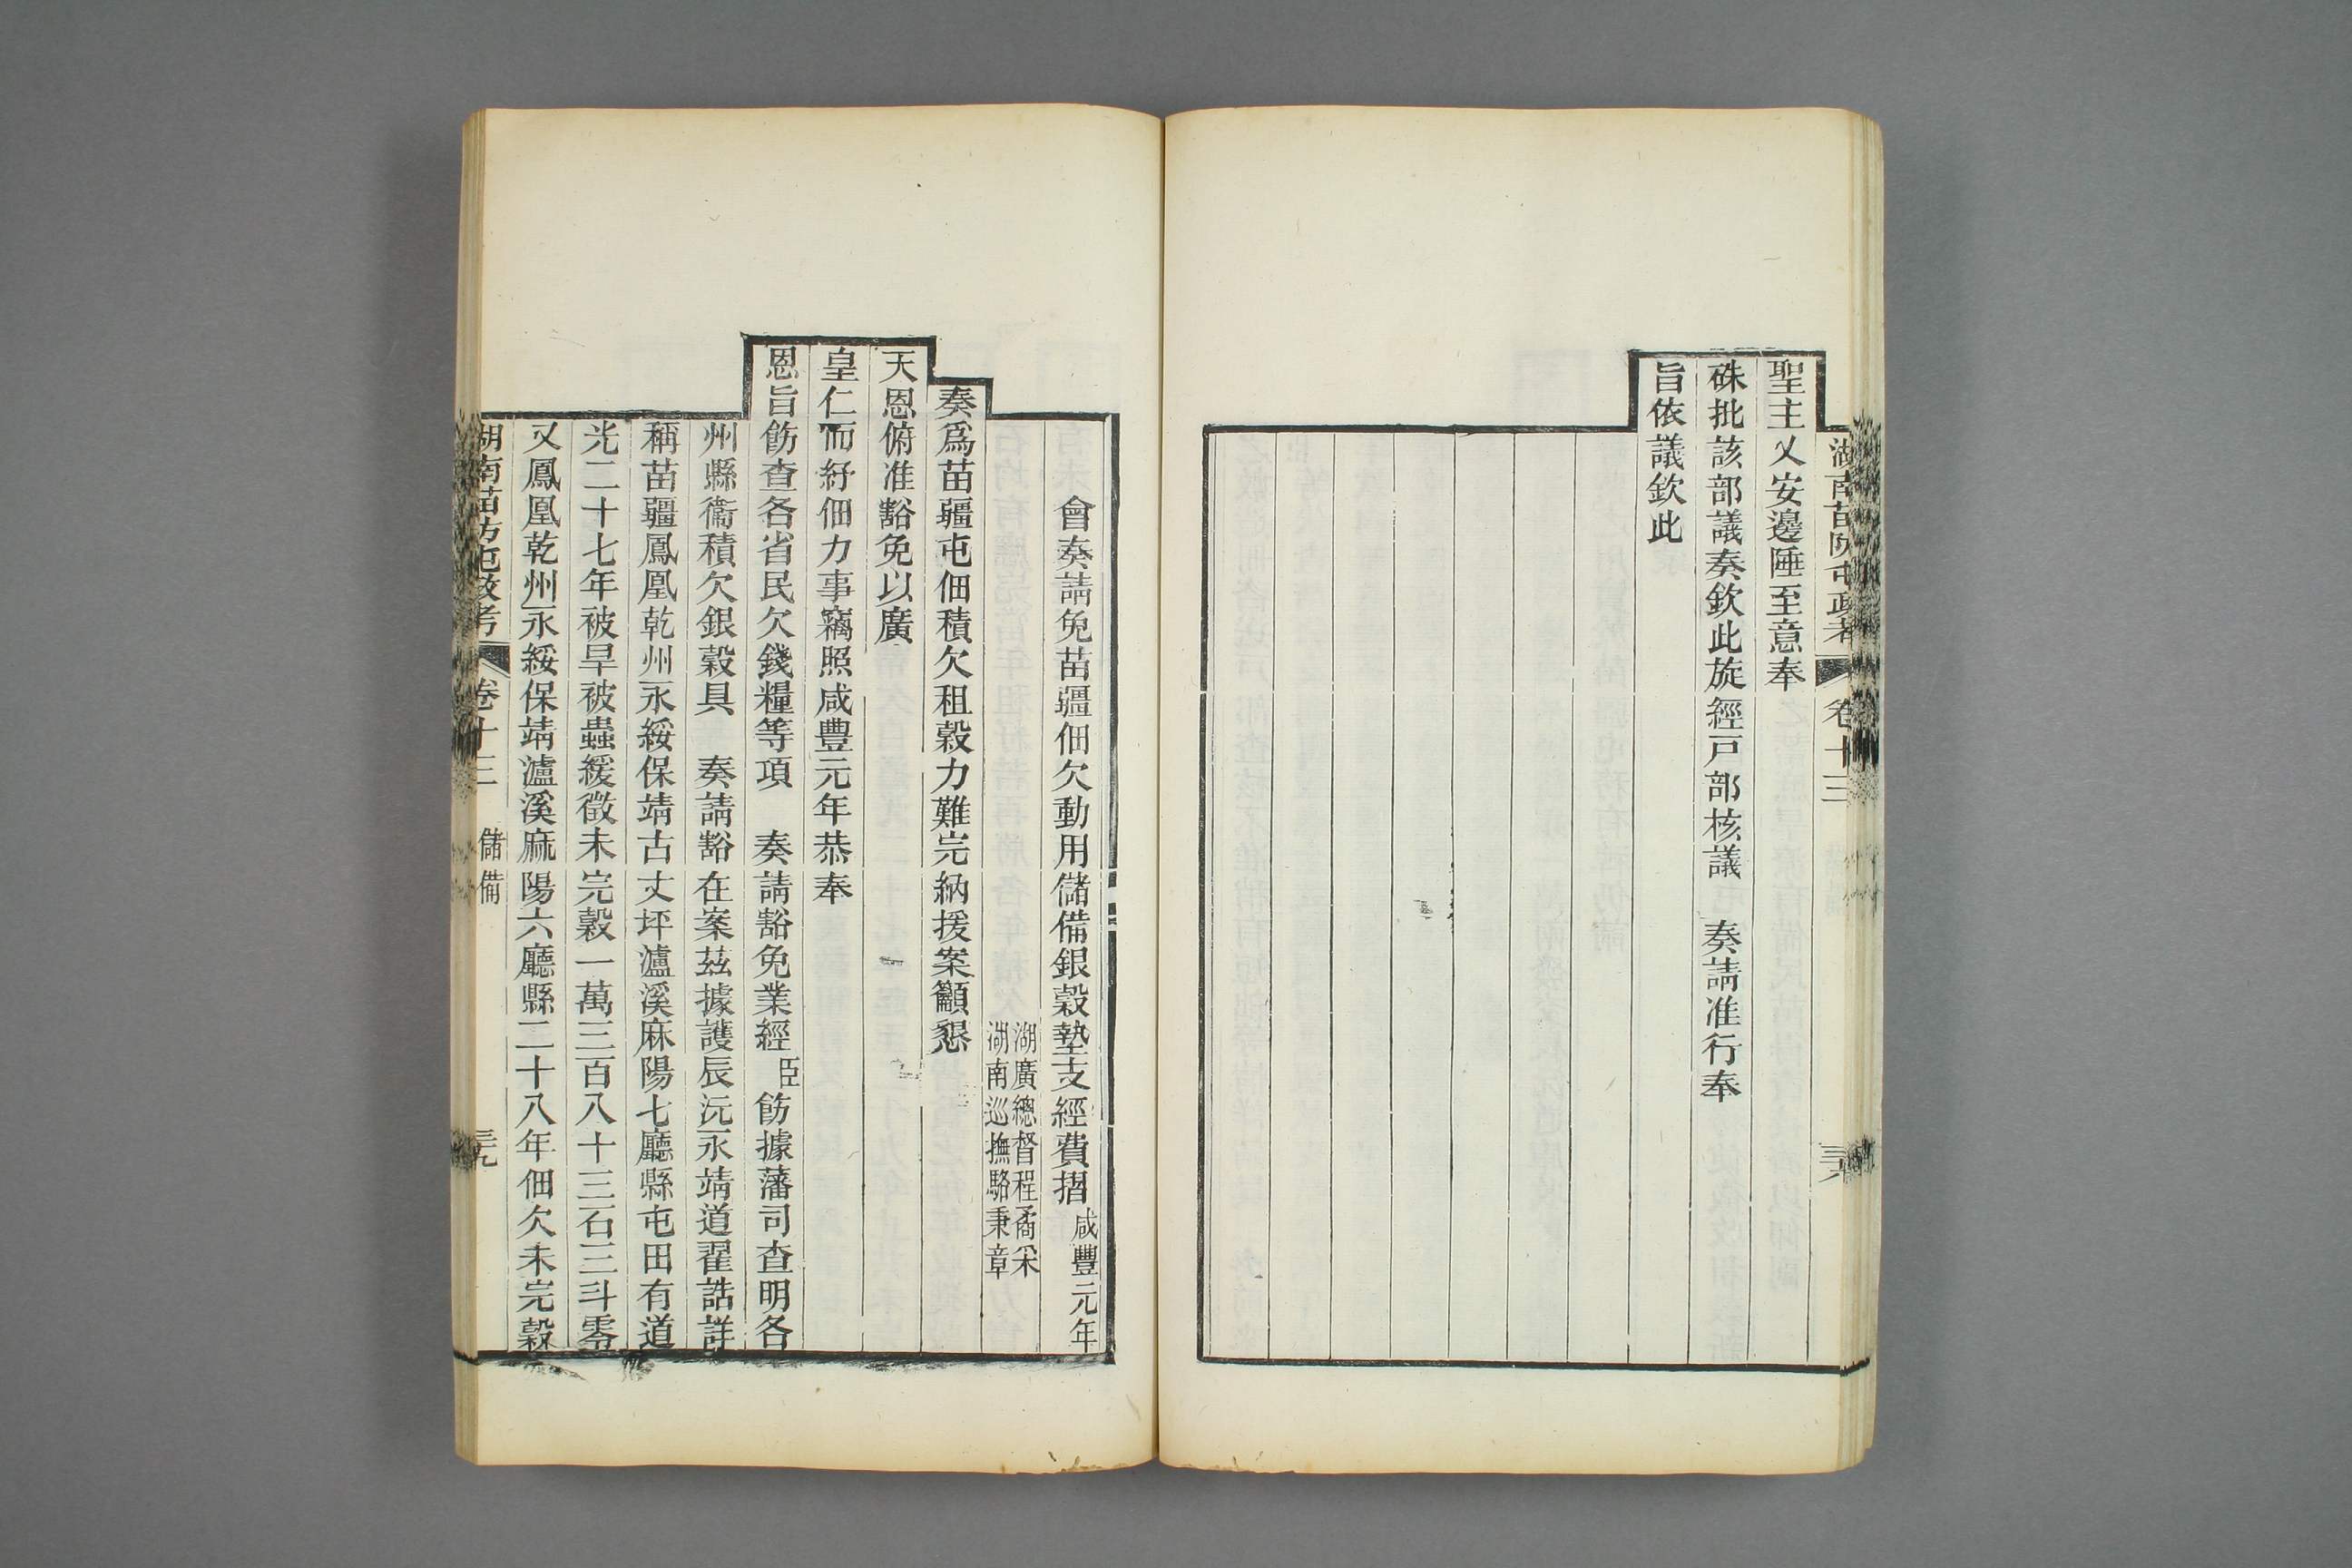 湖南苗防屯政考 卷十三
聖主乂安邊陲至意奉
硃批該部議奏欽此旋經戸部核議　奏請准行奉
旨依議欽此
會奏請免苗疆佃欠動用儲備銀穀墊支經費摺 咸豐元年
湖廣總督程矞采
湖南巡撫駱秉章
奏爲苗疆屯佃積欠租穀力難完納援案籲懇
天恩俯准豁免以廣
皇仁而紓佃力事竊照咸豐元年恭奉
恩旨飭查各省民欠錢糧等項　奏請豁免業經臣飭據藩司查明各
州縣衞積欠銀穀具　奏請豁在案茲據護辰沅永靖道翟誥詳
稱苗疆鳳凰乾州永綏保靖古丈坪瀘溪麻陽七廳縣屯田有道
光二十七年被旱被蟲緩徵未完穀一萬三百八十三石三斗零
又鳳凰乾州永綏保靖瀘溪麻陽六廳縣二十八年佃欠未完穀
湖南苗防屯政考 卷十三 儲備 三九